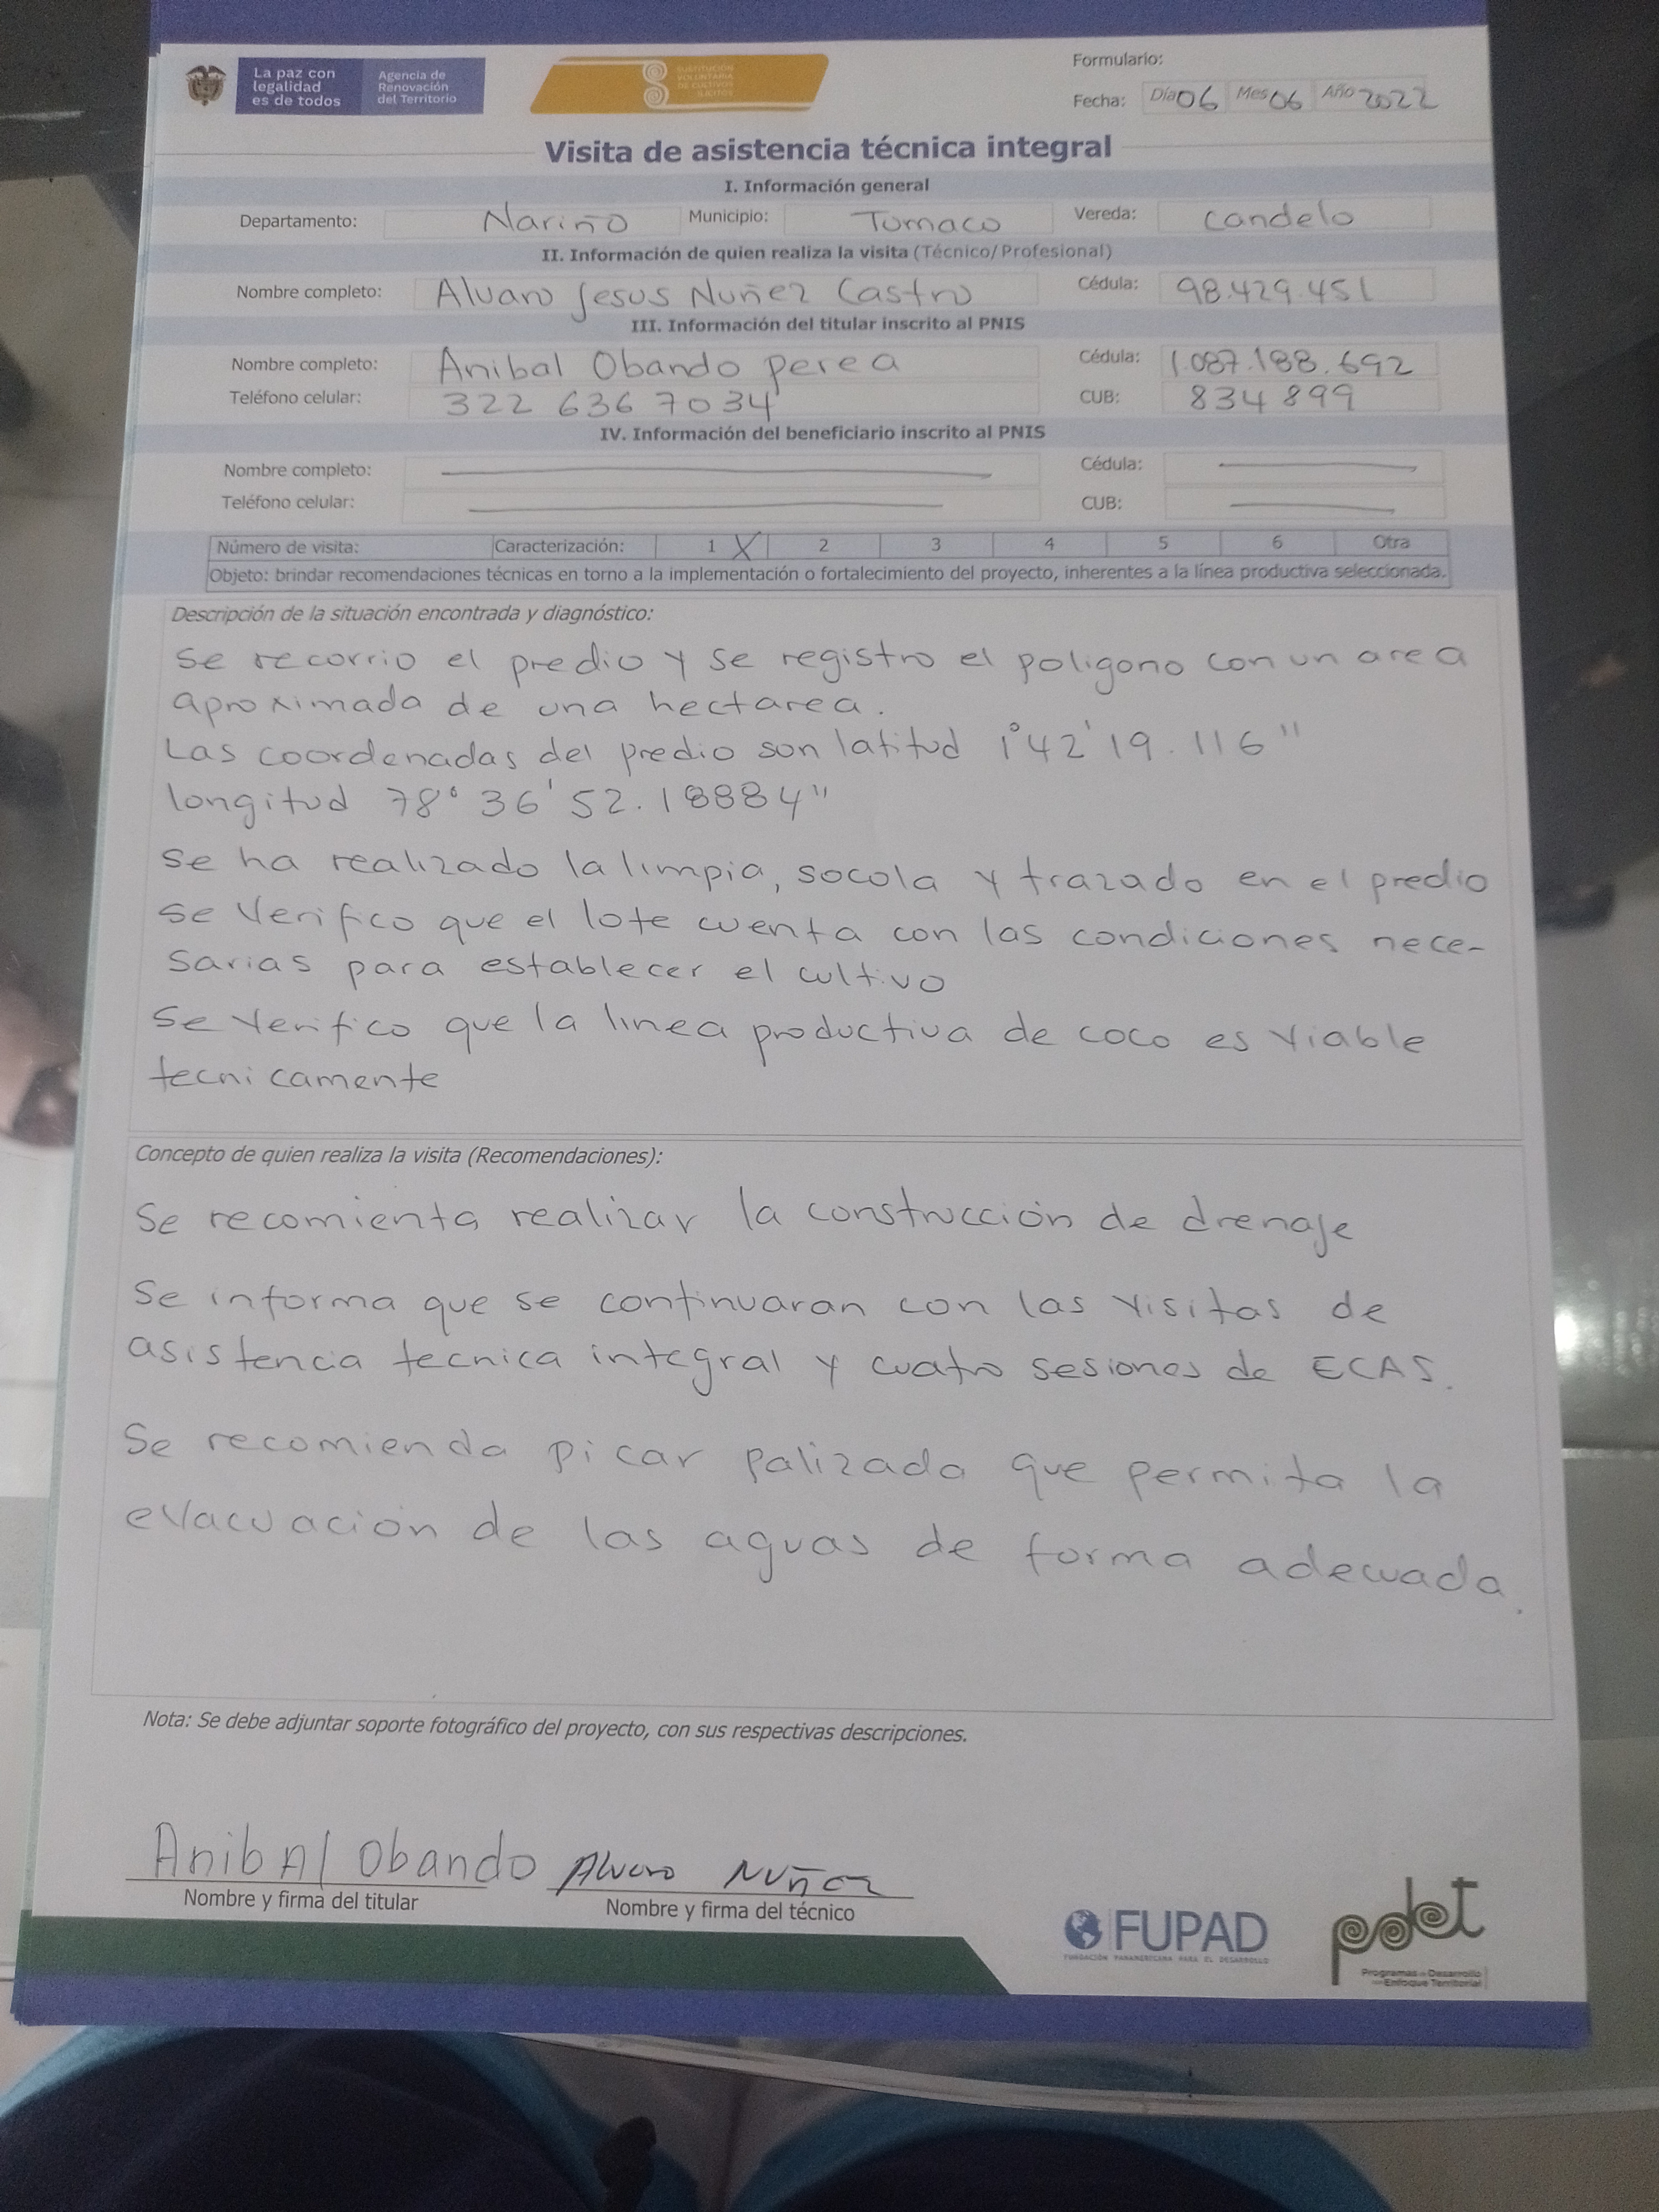 La paz con
legalidad
es de todos
Agencia de
Renovación
del Territorio
SUSTITUCIÓN
VOLUNTARIA
DE CULTIVOS
ILÍCITOS
Formulario:
Fecha: Día 06 Mes 06 Año 2022
Visita de asistencia técnica integral
I. Información general
Departamento: Nariño Municipio: Tumaco Vereda: Candelo
II. Información de quien realiza la visita (Técnico/Profesional)
Nombre completo: Alvaro Jesus Nuñez Castro Cédula: 98.429.451
III. Información del titular inscrito al PNIS
Nombre completo: Anibal Obando perea Cédula: 1.087.188.692
Teléfono celular: 322 636 7034 CUB: 834899
IV. Información del beneficiario inscrito al PNIS
Nombre completo: Cédula:
Teléfono celular: CUB:
Número de visita: Caracterización: 1 X 2 3 4 5 6 Otra
Objeto: brindar recomendaciones técnicas en torno a la implementación o fortalecimiento del proyecto, inherentes a la línea productiva seleccionada.
Descripción de la situación encontrada y diagnóstico:
Se recorrio el predio y se registro el poligono con un area
aproximada de una hectarea.
Las coordenadas del predio son latitud 1°42'19.116"
longitud 78° 36' 52.18884"
Se ha realizado la limpia, socola y trazado en el predio
Se verifico que el lote cuenta con las condiciones nece-
sarias para establecer el cultivo
Se verifico que la linea productiva de coco es viable
tecnicamente
Concepto de quien realiza la visita (Recomendaciones):
Se recomienta realizar la construcción de drenaje
Se informa que se continuaran con las visitas de
asistencia tecnica integral y cuatro sesiones de ECAS.
Se recomienda picar palizada que permita la
evacuación de las aguas de forma adecuada.
Nota: Se debe adjuntar soporte fotográfico del proyecto, con sus respectivas descripciones.
Anibal Obando Alvaro Nuñez
Nombre y firma del titular Nombre y firma del técnico
FUPAD
FUNDACIÓN PANAMERICANA PARA EL DESARROLLO
pdet
Programas de Desarrollo
con Enfoque Territorial